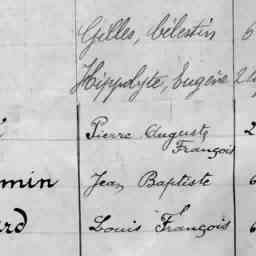 Gilles, Célestin 6
Hippolyte, Eugène
Pierre Auguste 2
François
min Jean Baptiste 6
ard Louis François 6